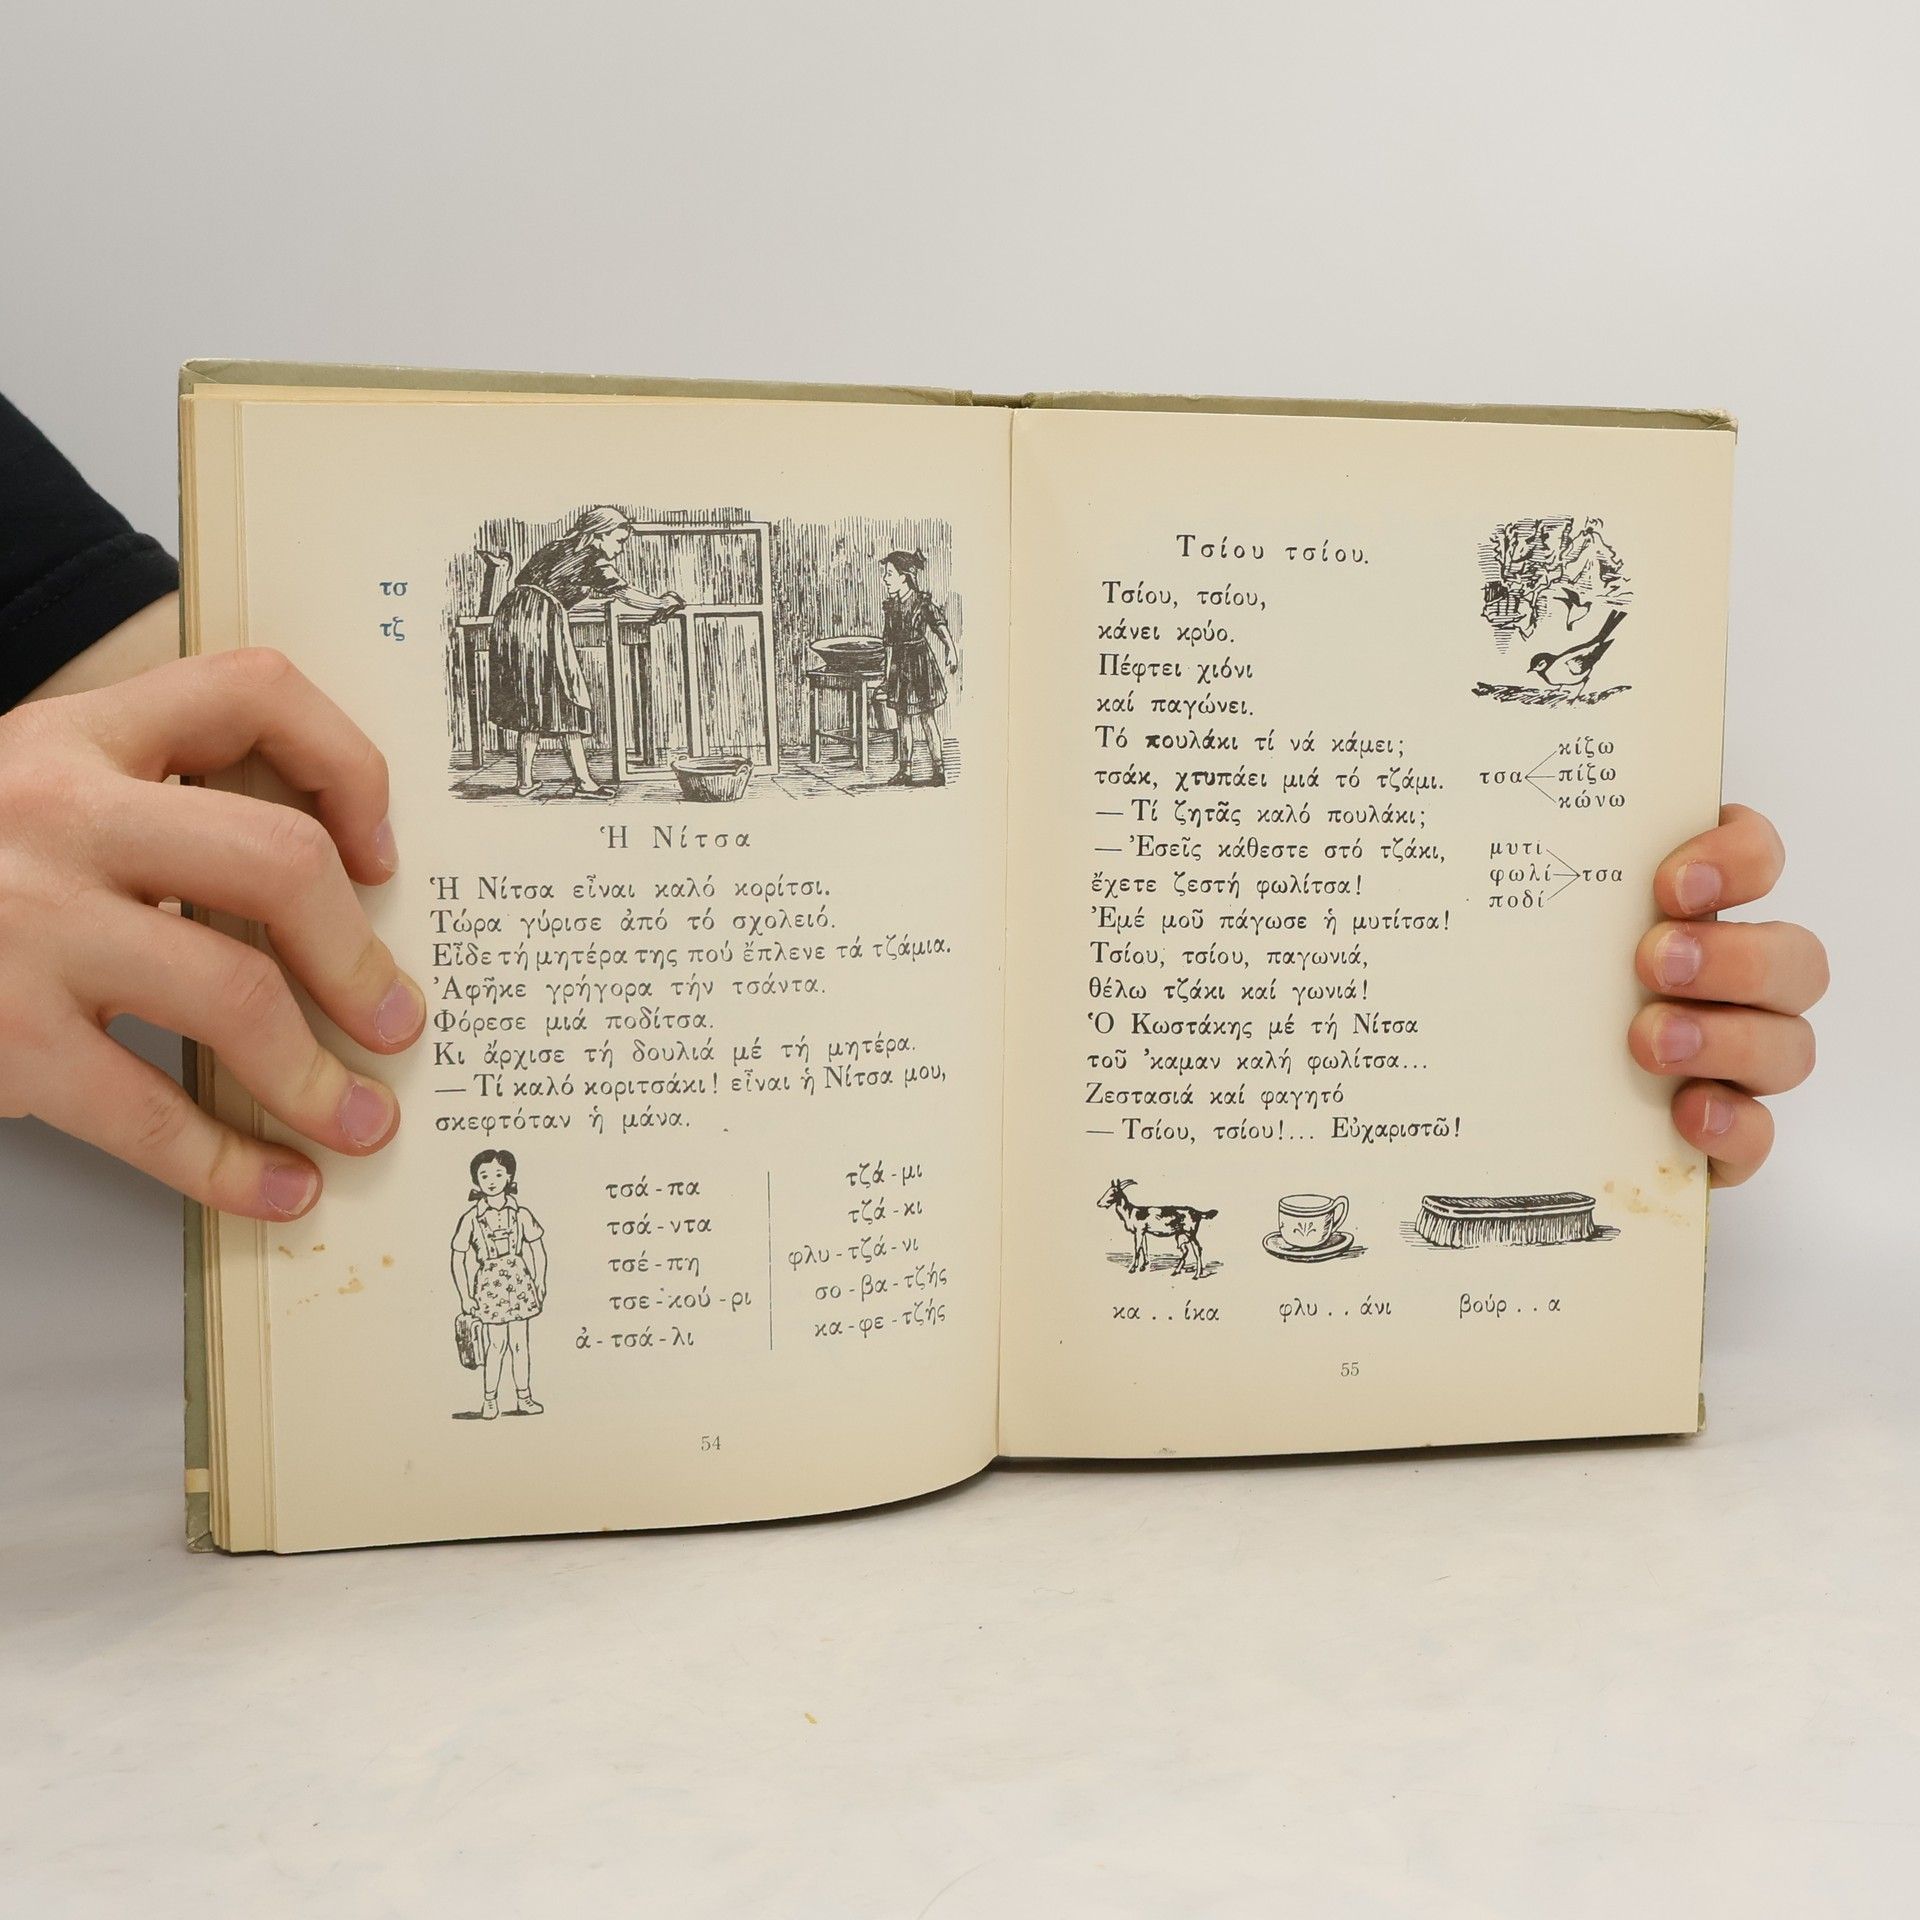 τσ
τζ
Ἡ Νίτσα
Ἡ Νίτσα εἶναι καλό κορίτσι.
Τώρα γύρισε ἀπό τό σχολειό.
Εἶδε τή μητέρα της πού ἔπλενε τά τζάμια.
Ἀφῆκε γρήγορα τήν τσάντα.
Φόρεσε μιά ποδίτσα.
Κι ἄρχισε τή δουλιά μέ τή μητέρα.
— Τί καλό κοριτσάκι! εἶναι ἡ Νίτσα μου,
σκεφτόταν ἡ μάνα.
τσά - πα
τσά - ντα
τσέ - πη
τσε - κού - ρι
ἀ - τσά - λι
τζά - μι
τζά - κι
φλυ - τζά - νι
σο - βα - τζής
κα - φε - τζής
54
Τσίου τσίου.
Τσίου, τσίου,
κάνει κρύο.
Πέφτει χιόνι
καί παγώνει.
Τό πουλάκι τί νά κάμει;
τσάκ, χτυπάει μιά τό τζάμι.
— Τί ζητᾶς καλό πουλάκι;
— Ἐσεῖς κάθεστε στό τζάκι,
ἔχετε ζεστή φωλίτσα!
Ἐμέ μοῦ πάγωσε ἡ μυτίτσα!
Τσίου, τσίου, παγωνιά,
θέλω τζάκι καί γωνιά!
Ὁ Κωστάκης μέ τή Νίτσα
τοῦ ’καμαν καλή φωλίτσα...
Ζεστασιά καί φαγητό
— Τσίου, τσίου!... Εὐχαριστῶ!
κίζω
τσα πίζω
κώνω
μυτί
φωλί τσα
ποδί
κα . . ίκα
φλυ . . άνι
βούρ . . α
55